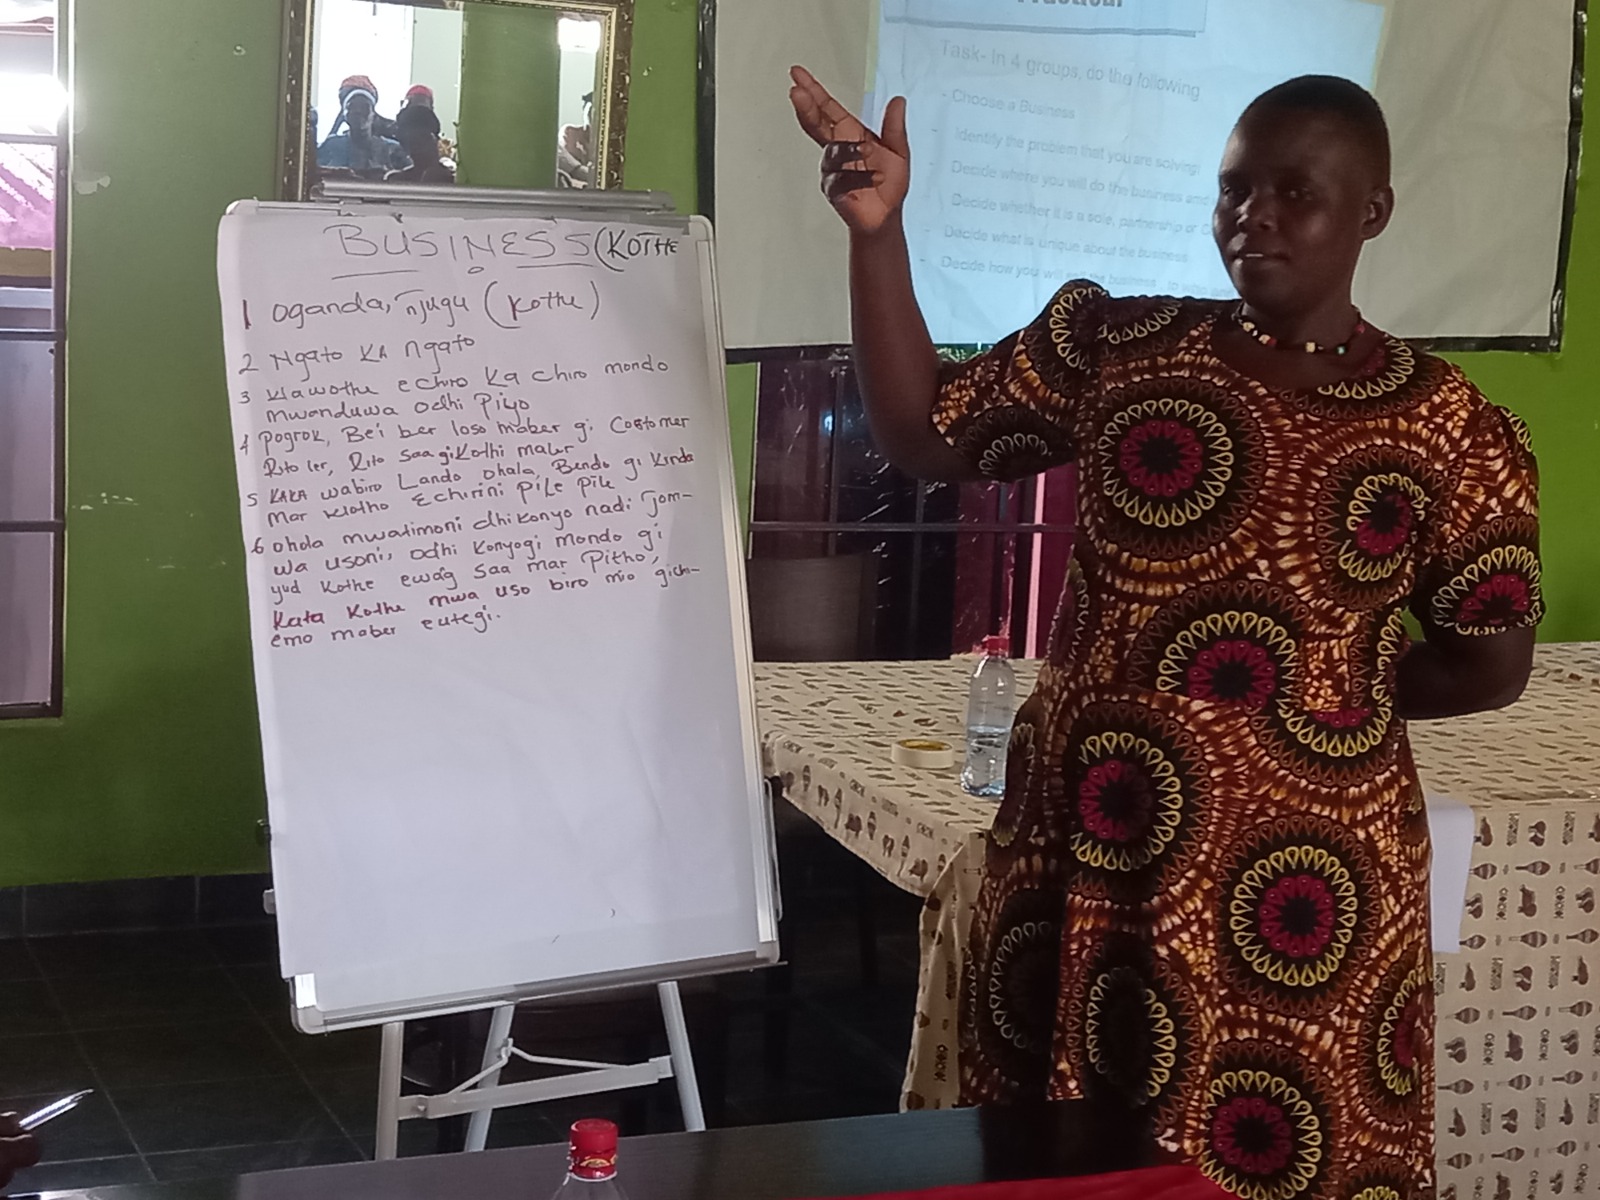 BUSINESS (KOTHE
1 Oganda, Njugu (Kothe)
2 Ngato KA ngato
3 Wawothe echiro Ka Chiro mondo
mwanduwa odhi Piyo
4 Pogrok, Bei ber loso maber gi Costomer
Rito ler, Rito saa gi Kothi maber
5 KAKA wabiro Lando ohala, Bende gi Kinda
Mar Wotho Echirini Pile Pile
6 Ohala mwatimoni dhi konyo nadi Jom-
wa usoni, odhi Konyogi mondo gi
yud Kothe ewag saa mar Pitho,
Kata Kothe mwa uso biro mio gich-
emo maber eutegi.
Practical
Task- In 4 groups, do the following
- Choose a Business
- Identify the problem that you are solving
- Decide where you will do the business and
- Decide whether it is a sole, partnership or
- Decide what is unique about the business
- Decide how you will the business , to who